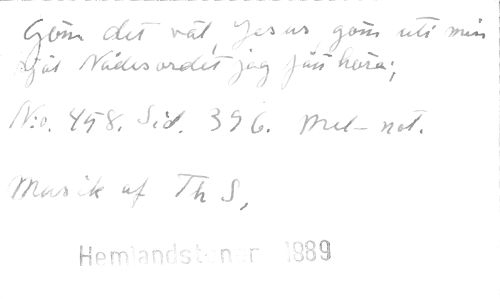 Göm det väl, Jesus göm uti min
själ Nådesordet jag fått höra;
No. 458. Sid. 396. Mel-not.
Musik af Th S,
Hemlandstoner 1889